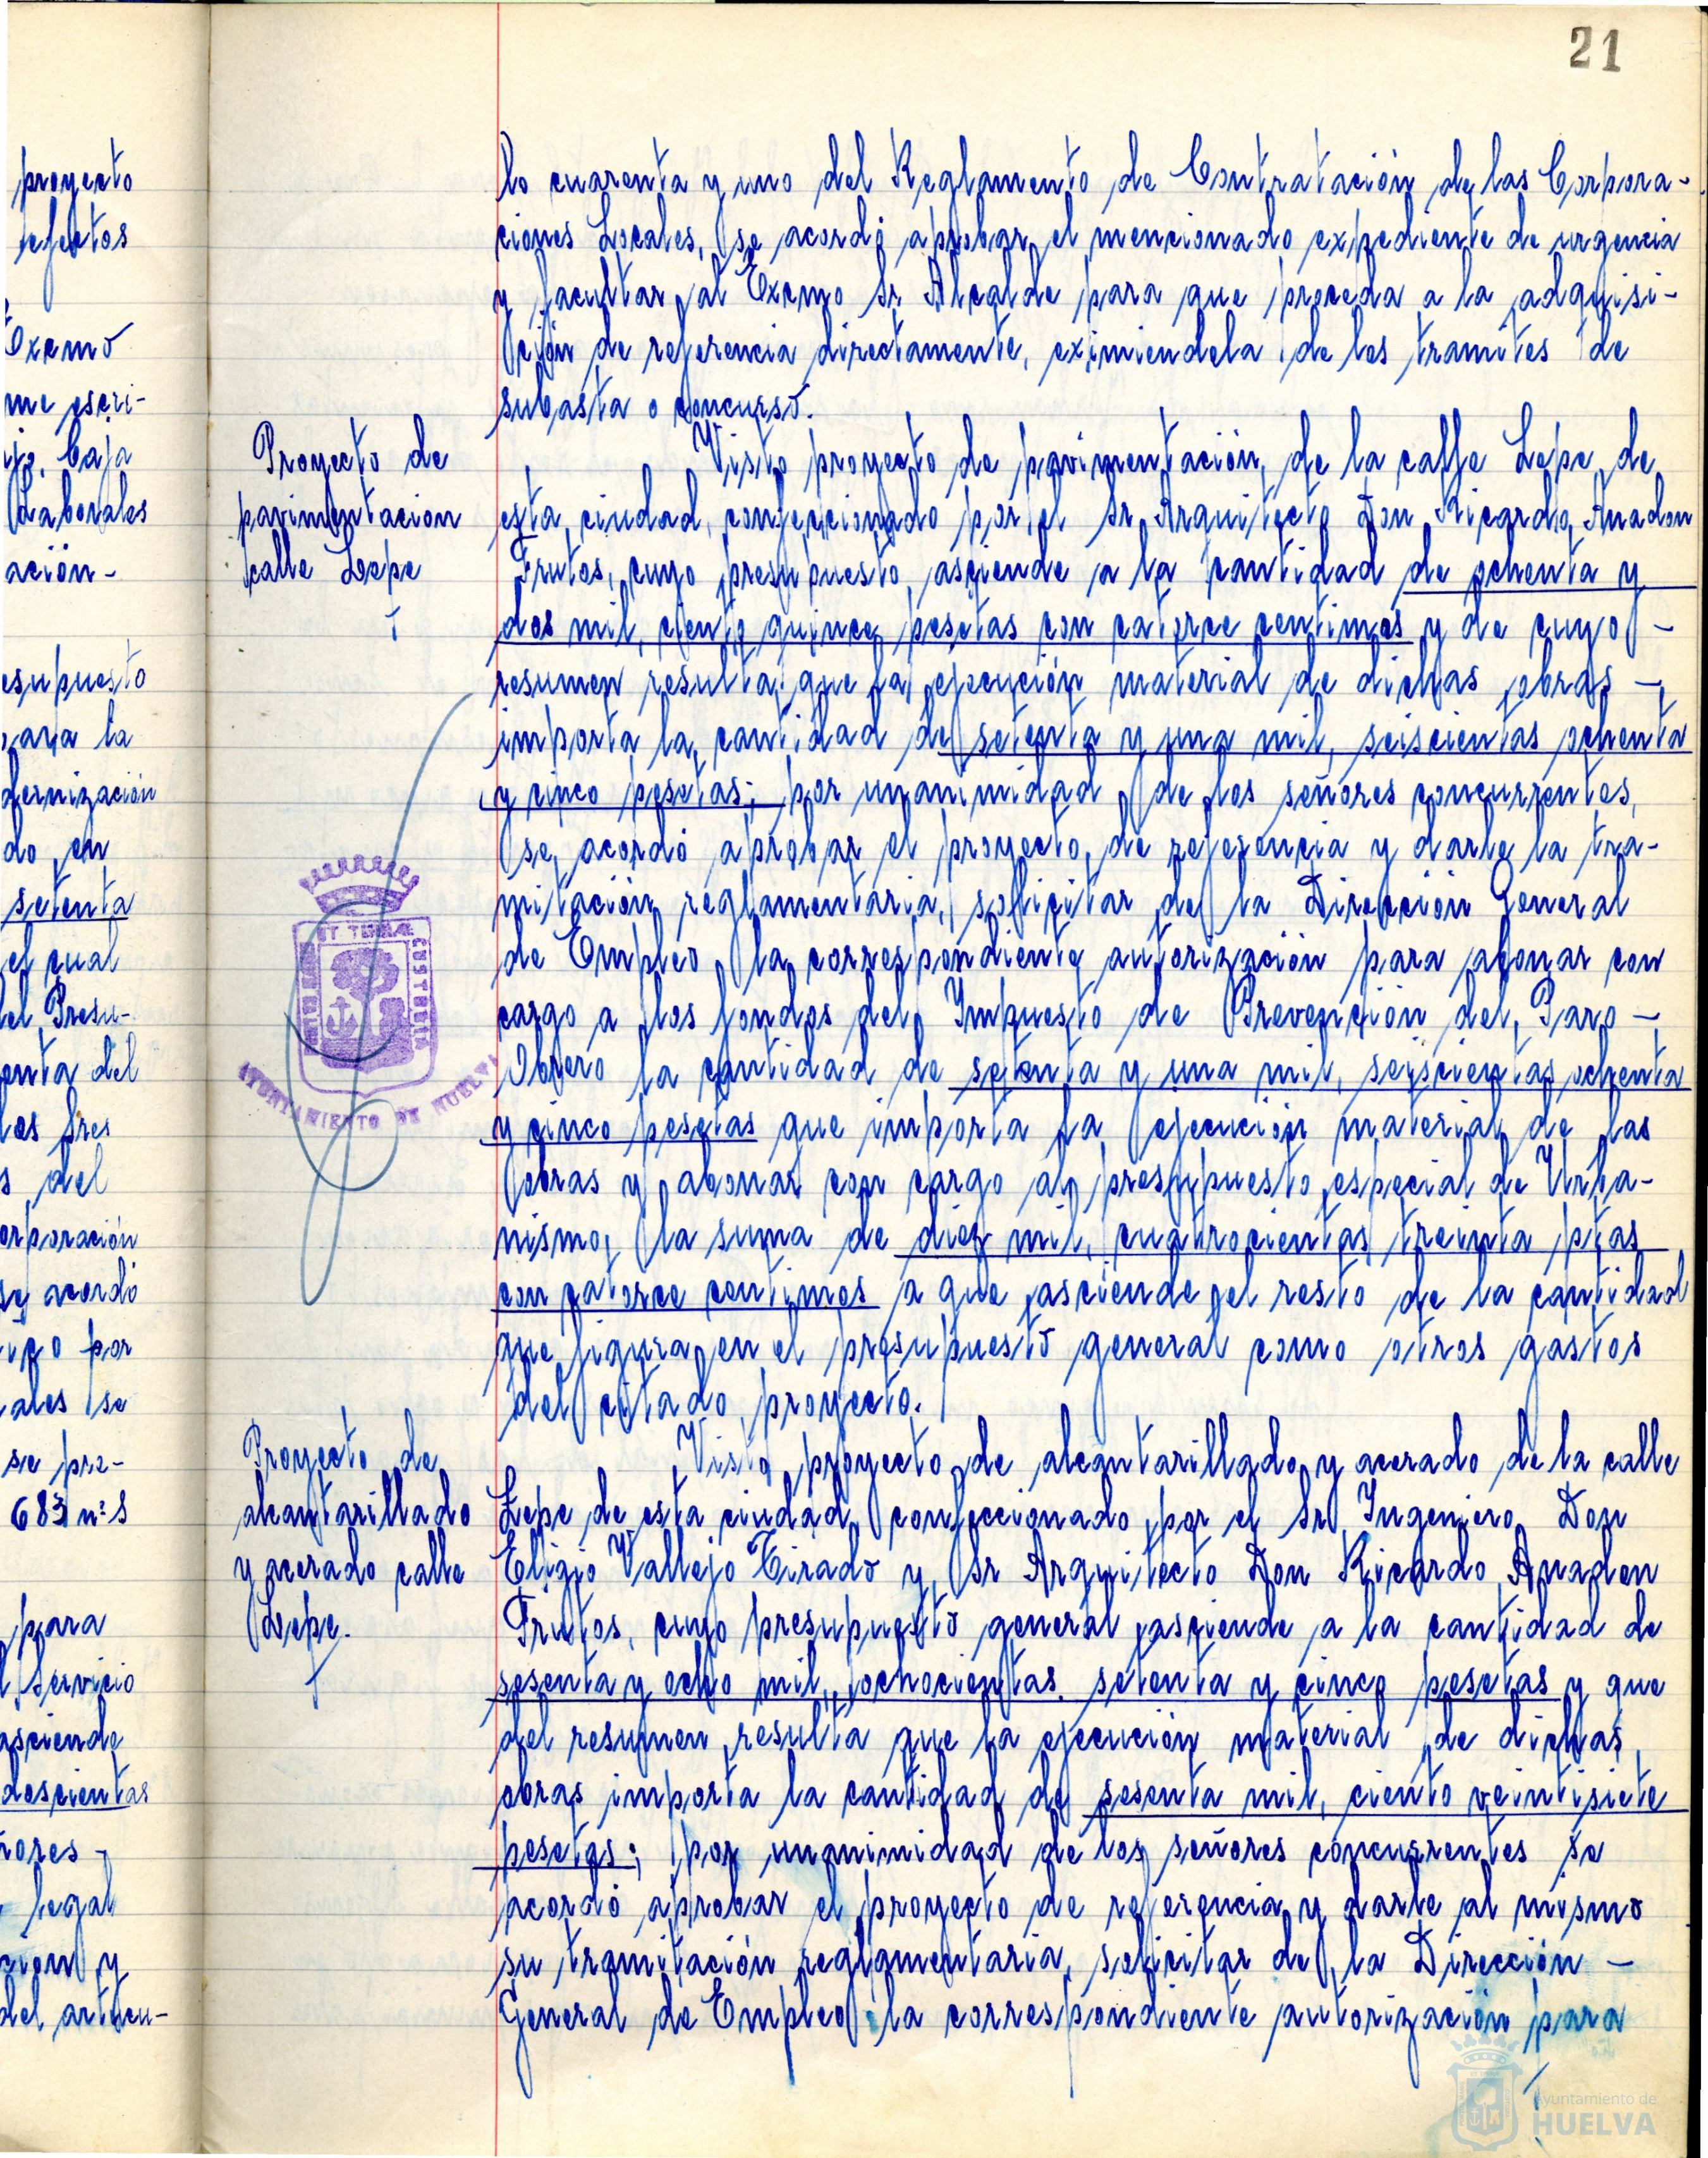 21
proyecto
efectos
Excmo
me escri-
jo. baja
Laborales
ación-
esupuesto
para la
dernización
do, en
setenta
el cual
el Presu-
enta del
los Sres
s del
orporación
se acordó
ico por
ales se
se pre-
683 nº: 8
para
l Servicio
asciende
doscientas
ñores -
legal
ción y
del artícu-
lo cuarenta y uno del Reglamento de Contratación de las Corpora-
ciones Locales, se acordó aprobar el mencionado expediente de urgencia
y facultar al Excmo Sr Alcalde para que proceda a la adquisi-
ción de referencia directamente, eximiendola de los tramites de
subasta o concurso.
Proyecto de
pavimentacion
calle Lepe
Visto proyecto de pavimentación, de la calle Lepe de
esta ciudad, confeccionado por el Sr. Arquitecto Don Ricardo Anadon
Frutos, cuyo presupuesto asciende a la cantidad de ochenta y
dos mil, ciento quince pesetas con catorce centimos y de cuyo -
resumen resulta que la ejecución material de dichas obras -
importa la cantidad de setenta y una mil, seiscientas ochenta
y cinco pesetas; por unanimidad de los señores concurrentes,
se acordó aprobar el proyecto de referencia y darle la tra-
mitación reglamentaria, solicitar de la Dirección General
de Empleo la correspondiente autorización para abonar con
cargo a los fondos del Impuesto de Prevención del Paro -
Obrero la cantidad de setenta y una mil, seiscientas ochenta
y cinco pesetas que importa la ejecución material de las
obras y abonar con cargo al presupuesto especial de Urba-
nismo, la suma de diez mil, cuatrocientas treinta ptas
con catorce centimos a que asciende el resto de la cantidad
que figura en el presupuesto general como otros gastos
del citado proyecto.
ET TERRAE CUSTODIA
AYUNTAMIENTO DE HUELVA
Proyecto de
alcantarillado
y acerado calle
Lepe.
Visto proyecto de alcantarillado y acerado de la calle
Lepe de esta ciudad, confeccionado por el Sr Ingeniero Don
Eligio Vallejo Tirado y Sr Arquitecto Don Ricardo Anadon
Frutos, cuyo presupuesto general asciende a la cantidad de
sesenta y ocho mil, ochocientas setenta y cinco pesetas y que
del resumen resulta que la ejecución material de dichas
obras importa la cantidad de sesenta mil, ciento veintisiete
pesetas; por unanimidad de los señores concurrentes se
acordó aprobar el proyecto de referencia y darle al mismo
su tramitación reglamentaria, solicitar de la Dirección -
General de Empleo la correspondiente autorización para
Ayuntamiento de
HUELVA